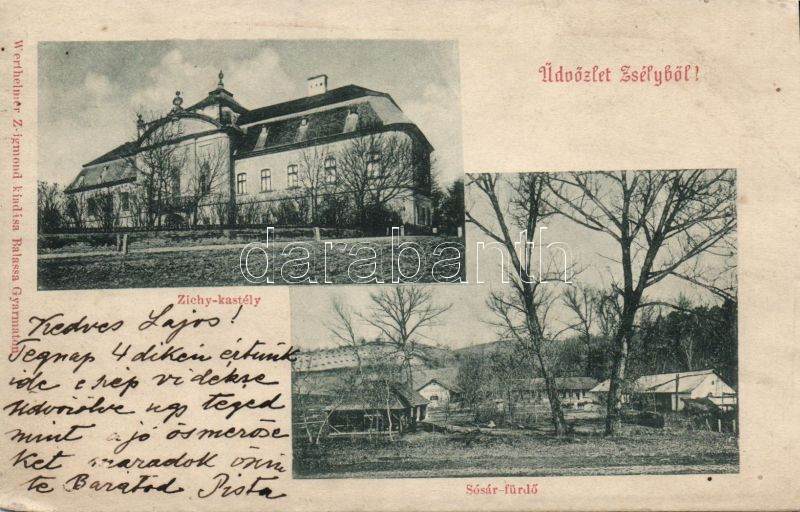 Üdvözlet Zsélyből!
Werthelmer Zsigmond kiadása Balassa Gyarmaton
darabanth
Zichy-kastély
Kedves Lajos!
Tegnap 4 dikén értünk
ide e szép vidékre
üdvözölve ugy téged
mint a jó ösmerőse
ket maradok őszin
te Barátod Pista
Sósár-fürdő